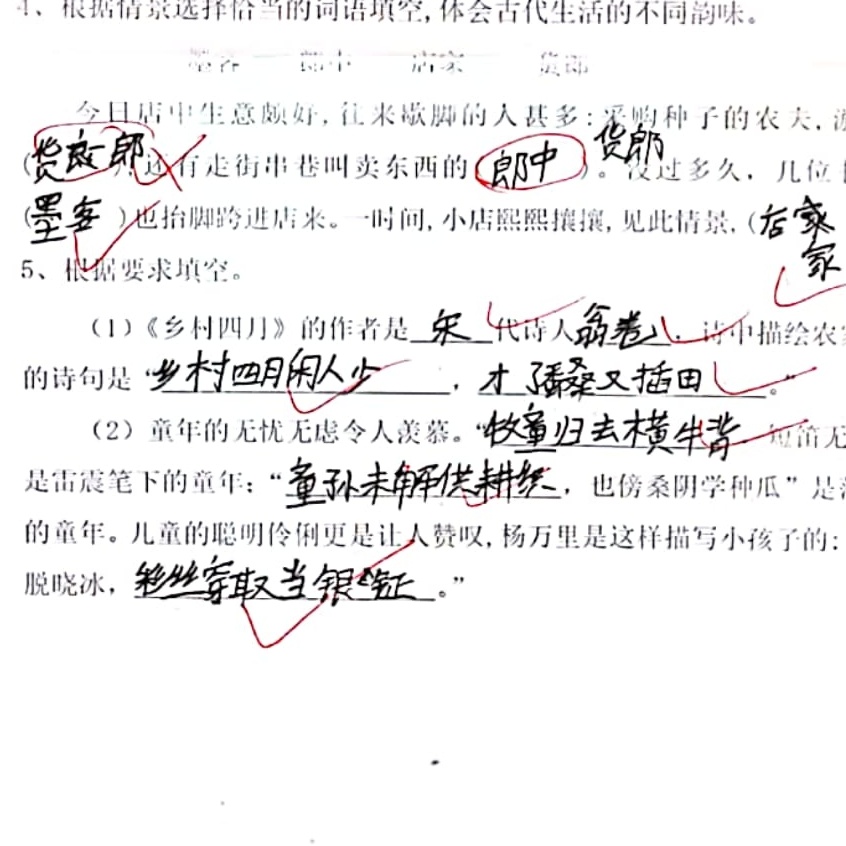 4、根据情景选择恰当的词语填空,体会古代生活的不同韵味。
墨客 郎中 店家 货郎
今日店中生意颇好,往来歇脚的人甚多:采购种子的农夫,
(货郎),还有走街串巷叫卖东西的(郎中)。没过多久,几位
货郎
(墨客)也抬脚跨进店来。一时间,小店熙熙攘攘,见此情景,(店家
家
5、根据要求填空。
(1)《乡村四月》的作者是 宋 代诗人翁卷,诗中描绘农
的诗句是“乡村四月闲人少,才 桑又插田。”
(2)童年的无忧无虑令人羡慕。“牧童归去横牛背,短笛无
是雷震笔下的童年;“童孙未解供耕织,也傍桑阴学种瓜”是
的童年。儿童的聪明伶俐更是让人赞叹,杨万里是这样描写小孩子的:
脱晓冰,彩丝穿取当银钲。”